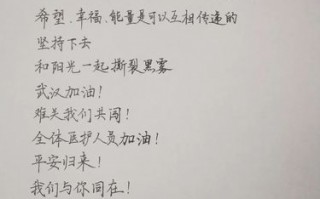 希望、幸福、能量是可以互相传递的
坚持下去
和阳光一起撕裂黑雾
武汉加油！
难关我们共闯！
全体医护人员加油！
平安归来！
我们与你同在！